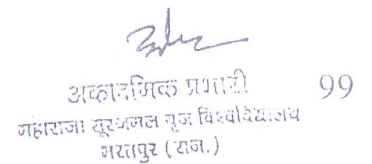 अकादमिक प्रभारी
99
महाराजा सूरजमल बृज विश्वविद्यालय
भरतपुर (राज.)